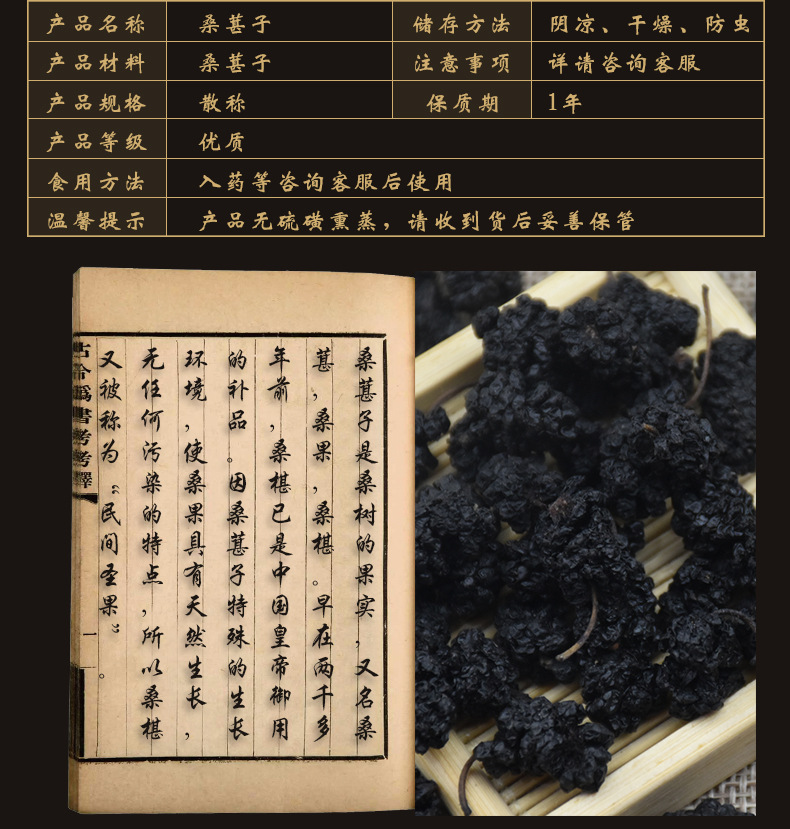 产品名称 桑葚子 储存方法 阴凉、干燥、防虫
产品材料 桑葚子 注意事项 详请咨询客服
产品规格 散称 保质期 1年
产品等级 优质
食用方法 入药等咨询客服后使用
温馨提示 产品无硫磺熏蒸，请收到货后妥善保管
桑葚子是桑树的果实，又名桑
葚，桑果，桑椹。早在两千多
年前，桑椹已是中国皇帝御用
的补品。因桑葚子特殊的生长
环境，使桑果具有天然生长，
无任何污染的特点，所以桑椹
又被称为“民间圣果”。
書考考釋
一